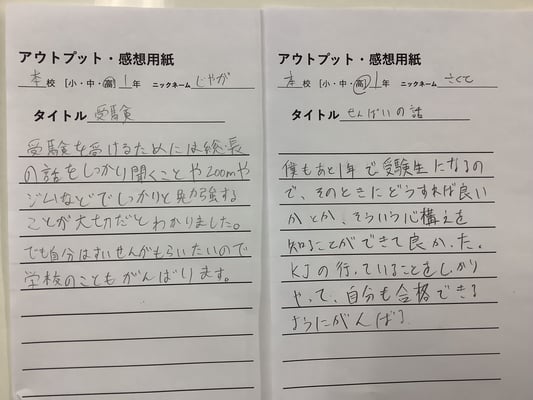 アウトプット・感想用紙
本校 [小・中・高] 1年 ニックネーム じゃが
タイトル 受験
受験を受けるためには総長
の話をしっかり聞くことやzoomや
ジムなどでしっかりと勉強する
ことが大切だとわかりました。
でも自分はすいせんがもらいたいので
学校のこともがんばります。
アウトプット・感想用紙
本校 [小・中・高] 1年 ニックネーム さくと
タイトル せんぱいの話
僕もあと1年で受験生になるの
で、そのときにどうすれば良い
かとか、そういう心構えを
知ることができて良かった。
KJの行っていることをしっかり
やって、自分も合格できる
ようにがんばる